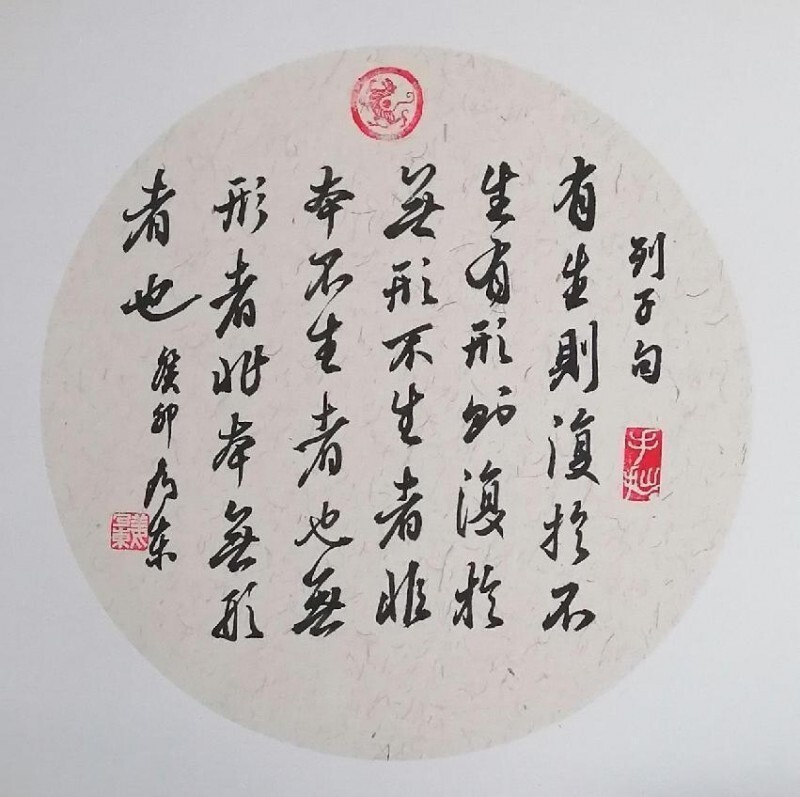 列子句
有生則復於不
生有形則復於
無形不生者非
本不生者也無
形者非本無形
者也
癸卯为東